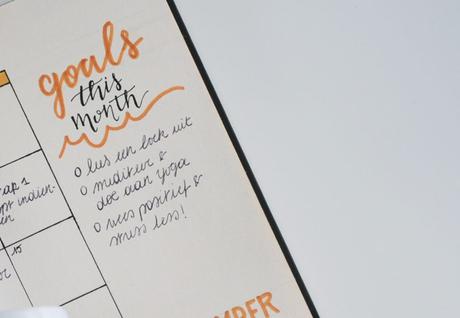 goals
this
month
o lees een boek uit
o mediteer &
doe aan yoga
o wees positief &
stress less!
15